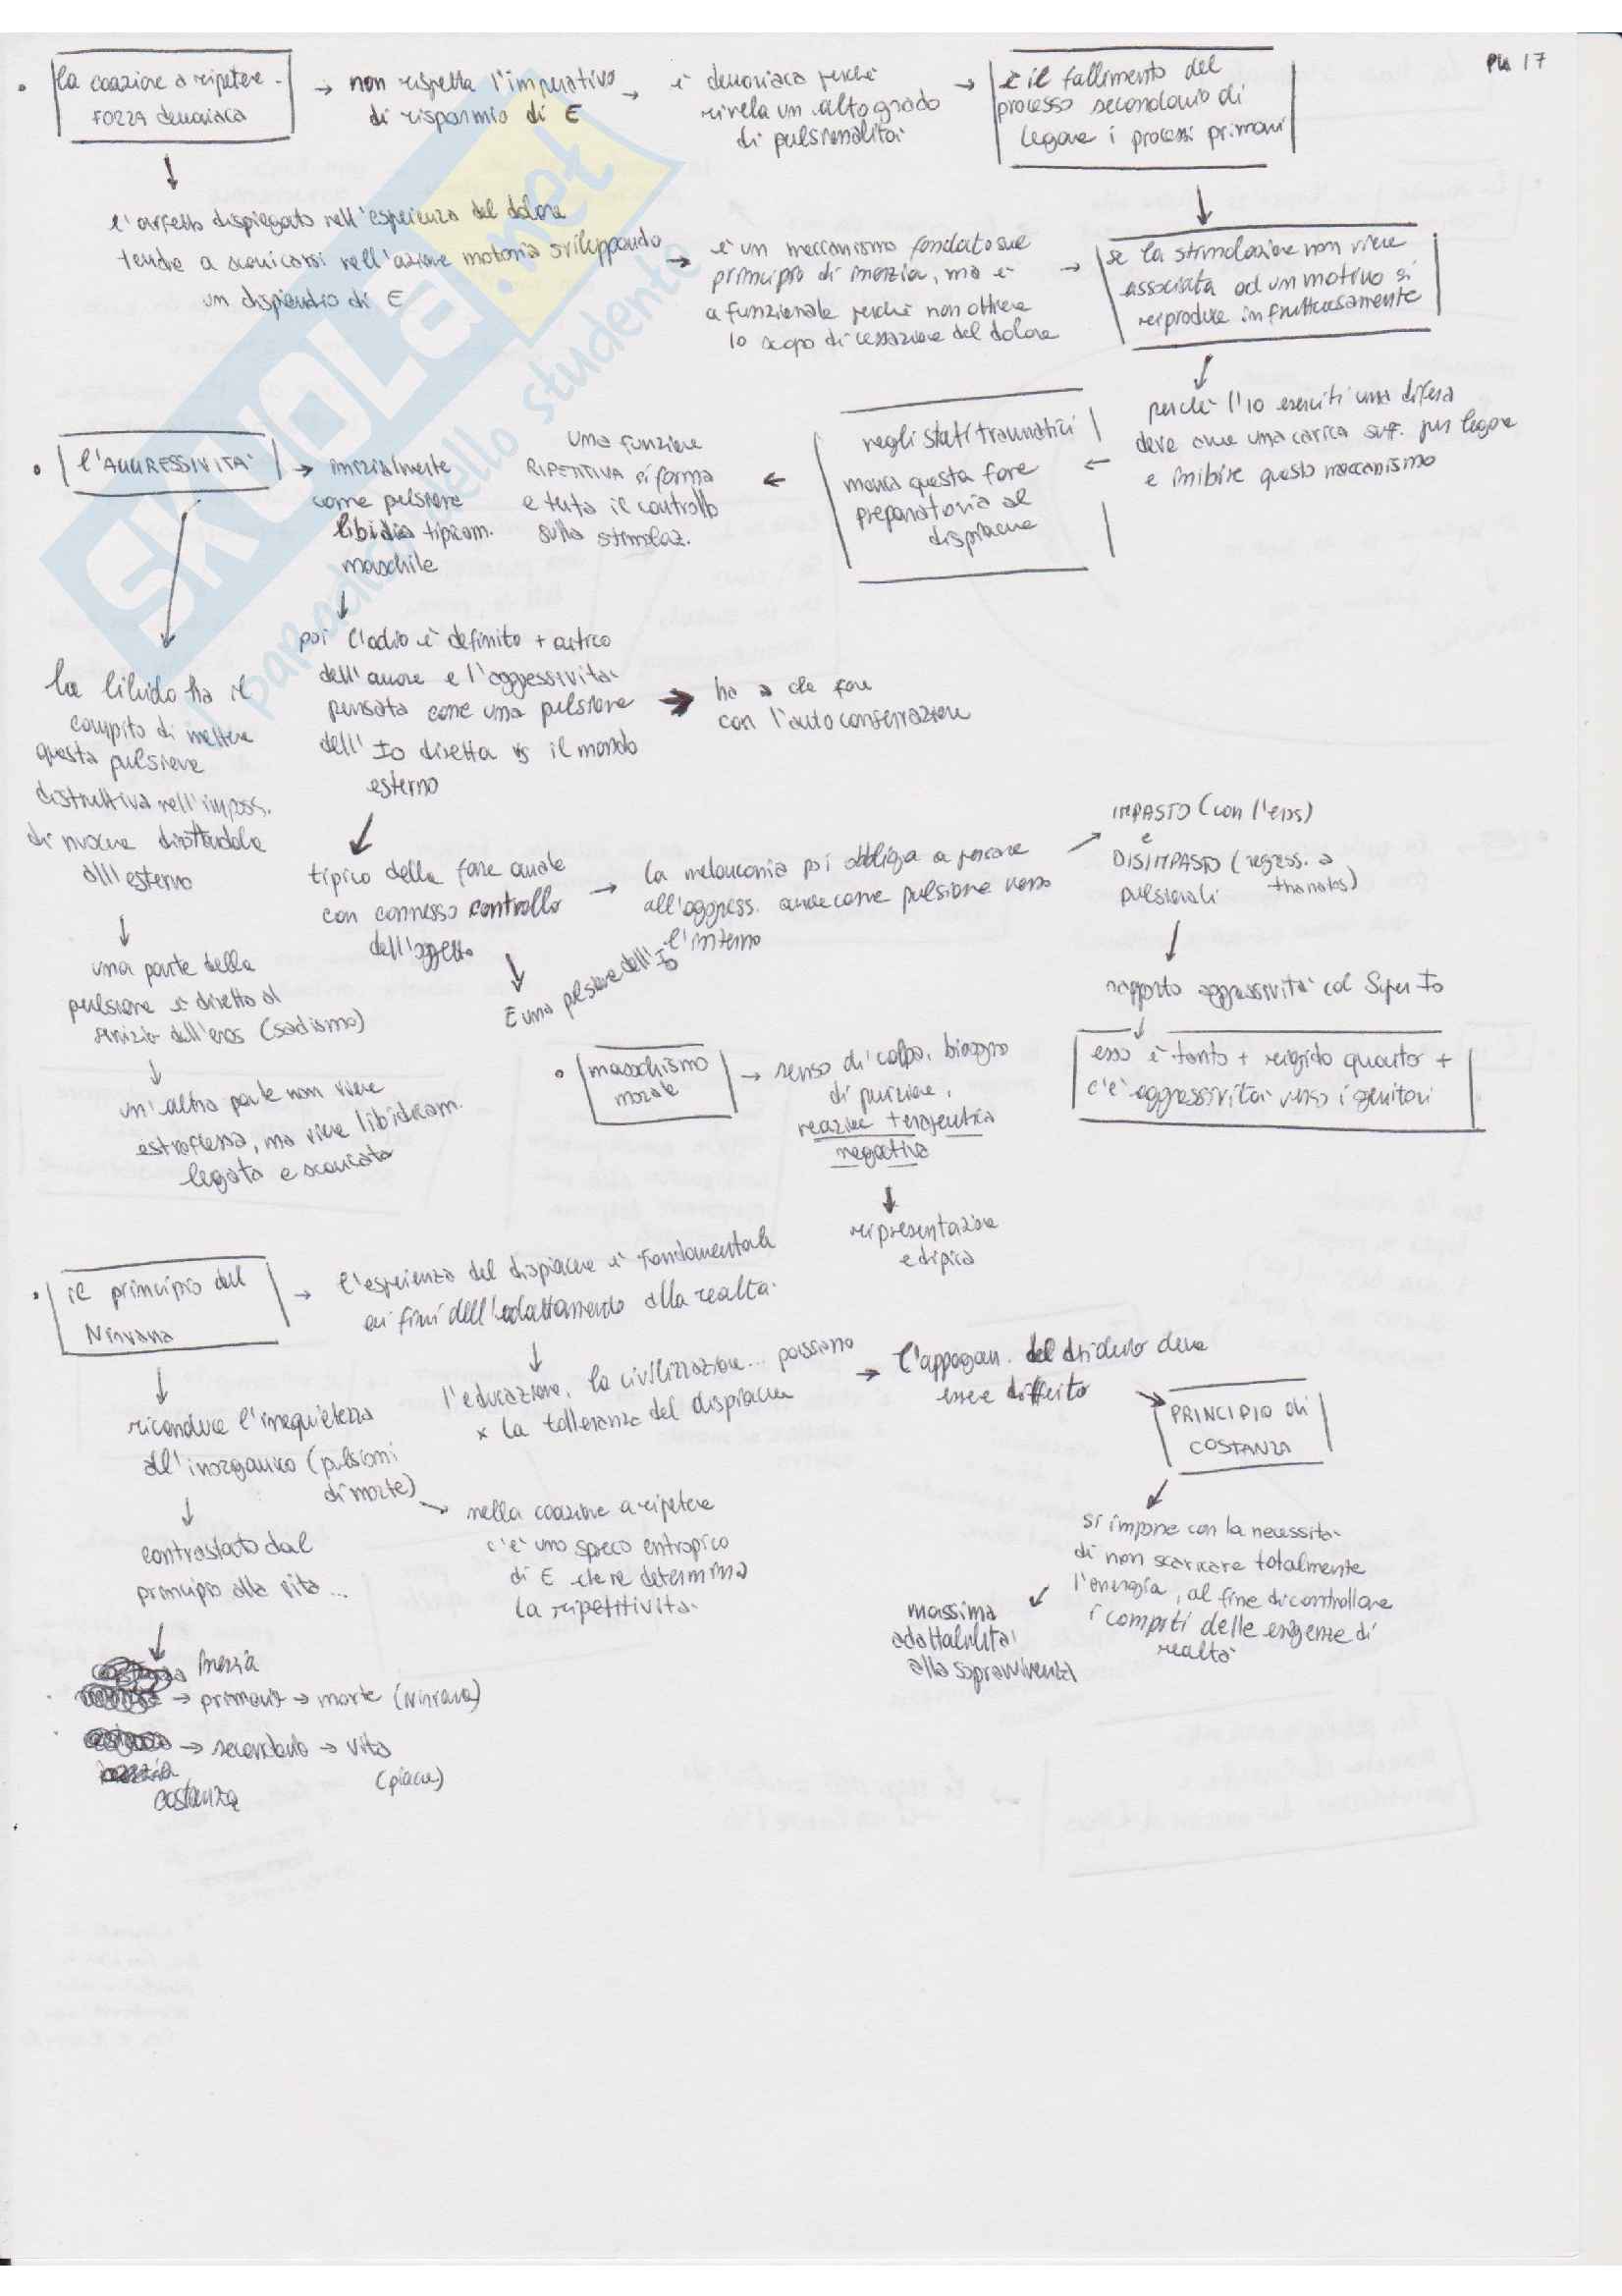 PU 17
la coazione a ripetere -
FORZA demoniaca
non rispetta l'imperativo
di risparmio di E
è demoniaca perchè
rivela un alto grado
di pulsionalità
è il fallimento del
processo secondario di
legare i processi primari
l'affetto dispiegato nell'esperienza del dolore
tende a scaricarsi nell'azione motoria sviluppando
un dispendio di E
è un meccanismo fondato sul
principio di inerzia, ma è
afunzionale perchè non ottiene
lo scopo di cessazione del dolore
se la stimolazione non viene
associata ad un motivo si
riproduce infruttuosamente
perchè l'Io eserciti una difesa
deve avere una carica suff. per legare
e inibire questo meccanismo
negli stati traumatici
manca questa fase
preparatoria al
dispiacere
una funzione
RIPETITIVA si forma
e tenta il controllo
sulla stimolaz.
l'AGGRESSIVITA'
inizialmente
come pulsione
libidica tipicam.
maschile
poi l'odio è definito + antico
dell'amore e l'aggressività
pensata come una pulsione
dell'Io diretta vs il mondo
esterno
ha a che fare
con l'autoconservazione
la libido ha il
compito di mettere
questa pulsione
distruttiva nell'imposs.
di nuocere dirottandola
all'esterno
una parte della
pulsione è diretta al
servizio dell'eros (sadismo)
un'altra parte non viene
estroflessa, ma viene libidicam.
legata e scaricata
tipico della fase anale
con connesso controllo
dell'oggetto
È una pulsione dell'Io
la melanconia poi obbliga a pensare
all'aggress. anche come pulsione verso
l'interno
IMPASTO (con l'eros)
e
DISIMPASTO (regress. a
pulsionali thanatos)
rapporto aggressività col Super Io
esso è tanto + rigido quanto +
c'è aggressività verso i genitori
masochismo
morale
senso di colpa, bisogno
di punizione,
reazione terapeutica
negativa
ripresentazione
edipica
il principio del
Nirvana
l'esperienza del dispiacere è fondamentale
ai fini dell'adattamento alla realtà
l'educazione, la civilizzazione... passano
x la tolleranza del dispiacere
l'appagam. del desiderio deve
essere differito
PRINCIPIO di
COSTANZA
si impone con la necessità
di non scaricare totalmente
l'energia, al fine di controllare
i compiti delle esigenze di
realtà
massima
adattabilità
alla sopravvivenza
riconduce l'irrequietezza
all'inorganico (pulsioni
di morte)
nella coazione a ripetere
c'è uno spreco entropico
di E che ne determina
la ripetitività
contrastato dal
principio alla vita ...
inerzia
→ primario → morte (Nirvana)
→ secondario → vita
(piacere)
costanza
SKUOLA.net
il paradiso dello studente